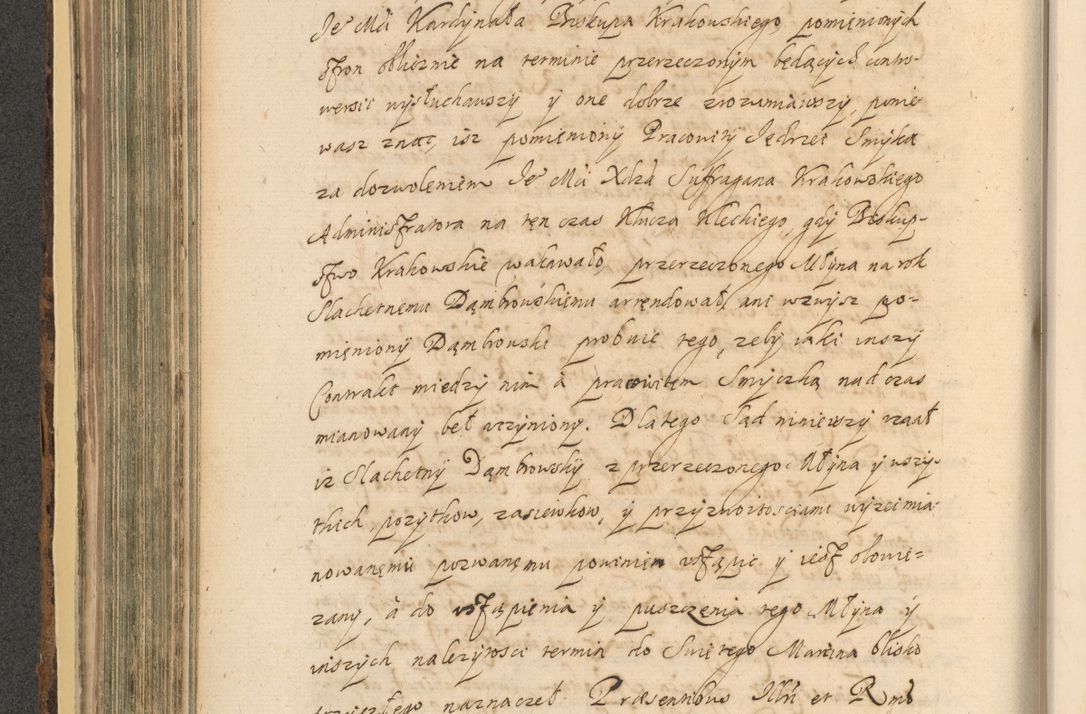 Je Mci Kardynała Biskupa Krakowskiego, pomienionych
stron oblicznie na terminie przerzeczonym będących contro-
wersie wysłuchawszy y one dobrze zrozumiawszy, ponie
wasz znac, isz pomieniony Pracowity Jędrzei Smyka
za dozwoleniem Je Mci Xdza Suffragana Krakowskiego
Administratora na tęn czas Klucza Kleckiego, gdy Biskup-
stwo Krakowskie wakawało, przerzeczonego Młyna na rok
Slachetnemu Dąmbrowskiemu arręndował, ani wzwysz po-
mięniony Dąmbrowski probuie tego, zeby iaki inszy
Contrakt między nim à pracowitem Smyczką nad czas
mianowany beł uczyniony. Dlatego Sąd ninieiszy uznał
isz Slachetny Dąmbrowsky z przerzeczonego Młyna y wszy-
tkich pozytkow, zasiewkow, y przyznoitosciami wyzei mia-
nowanęmu pozwanęmu powinien ustąpic y iest obowię=
zany, à do ustąpienia y puszczęnia tego Młyna y
inszych nalezytosci termin do Swiętego Marcina blisko
przyszłego naznaczeł. Præsentibus Illri et Rmo